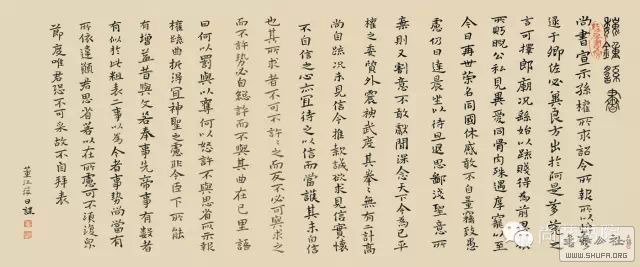 尚書宣示孫權所求詔令所報所以博示
逮于卿佐必冀良方出於阿是芻蕘之
言可擇郎廟況繇始以疏賤得為前恩橫
所盱睨公私見異愛同骨肉殊遇厚寵以至
今日再世榮名同國休慼敢不自量竊致愚
慮仍日達晨坐以待旦退思鄙淺聖意所
棄則又割意不敢獻聞深念天下今為已平
權之委質外震神武度其拳拳無有二計高
尚自疏況未見信今推款誠欲求見信實懷
不自信之心亦宜待之以信而當護其未自信
也其所求者不可不許許之而反不必可與求之
而不許勢必自絕許而不與其曲在己里語
曰何以罰與以奪何以怒許不與思省所示報
權疏曲折得宜宜神聖之慮非今臣下所能
有增益昔與文若奉事先帝事有數者
有似於此粗表二事以為今者事勢尚當有
所依違願君思省若以在所慮可不須復貌
節度唯君恐不可采故不自拜表
WWW.SHUFA.ORG